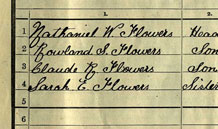 1.
1 Nathaniel W. Flowers Head
2 Rowland S. Flowers Son
3 Claude R. Flowers Son
4 Sarah E. Flowers Sister
5